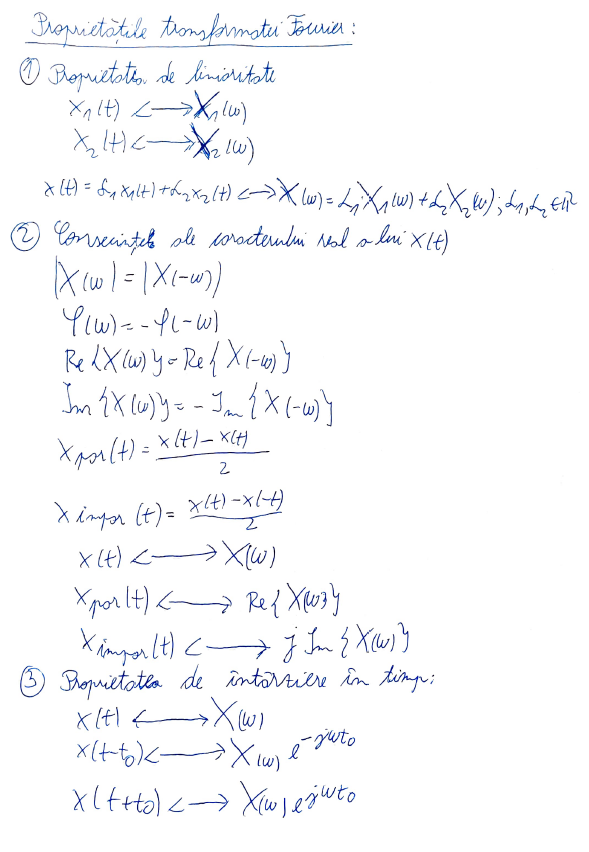 Proprietățile transformatei Fourier:
① Proprietatea de liniaritate
x₁(t) <—> X₁(ω)
x₂(t) <—> X₂(ω)
x(t) = α₁x₁(t) + α₂x₂(t) <—> X(ω) = α₁X₁(ω) + α₂X₂(ω); α₁, α₂ ∈ ℝ
② Consecințele ale caracterului real a lui x(t)
|X(ω)| = |X(-ω)|
φ(ω) = -φ(-ω)
Re{X(ω)} = Re{X(-ω)}
Im{X(ω)} = -Im{X(-ω)}
x par(t) = x(t) - x(t) / 2
x impar(t) = x(t) - x(-t) / 2
x(t) <—> X(ω)
x par(t) <—> Re{X(ω)}
x impar(t) <—> j Im{X(ω)}
③ Proprietatea de întârziere în timp:
x(t) <—> X(ω)
x(t-t₀) <—> X(ω) e^-jωt₀
x(t+t₀) <—> X(ω) e^jωt₀